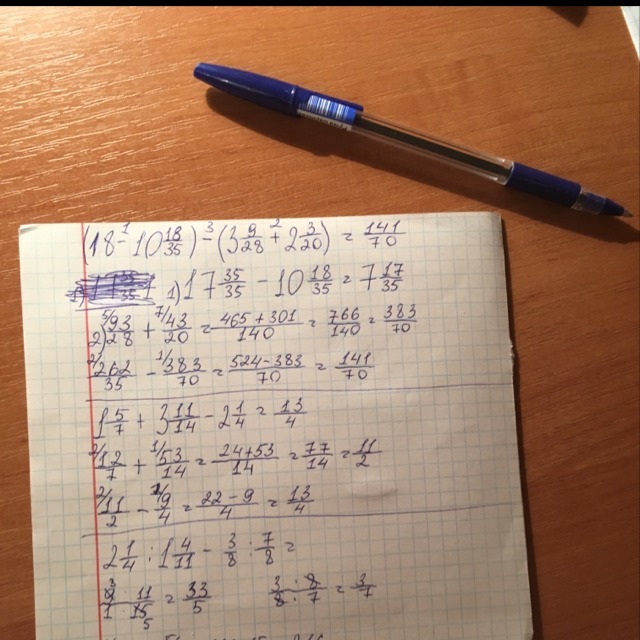 (18 - 10 18/35) - (3 9/28 + 2 3/20) = 141/70
1) 17 35/35 - 10 18/35 = 7 17/35
2) 93/28 + 43/20 = 465+301/140 = 766/140 = 383/70
262/35 - 383/70 = 524-383/70 = 141/70
1 5/7 + 3 11/14 - 2 1/4 = 13/4
12/7 + 53/14 = 24+53/14 = 77/14 = 11/2
11/2 - 9/4 = 22-9/4 = 13/4
2 1/4 : 1 4/11 - 3/8 : 7/8 =
9/1 11/15 = 33/5 3/8 : 8/7 = 3/7